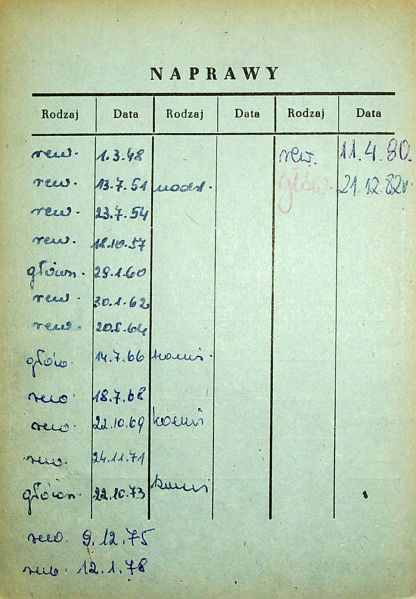 NAPRAWY
Rodzaj Data Rodzaj Data Rodzaj Data
rew. 1.3.48 rew. 11.4.80.
rew. 13.7.51 główn. 21.12.82r
rew. 23.7.54
rew. 18.10.57
główn. 29.1.60
rew. 30.1.62
rew. 20.5.64
główn. 14.7.66
rew. 18.7.68
rew. 22.10.69
rew. 24.11.71
główn. 22.10.73
rew. 9.12.75
rew. 12.1.78